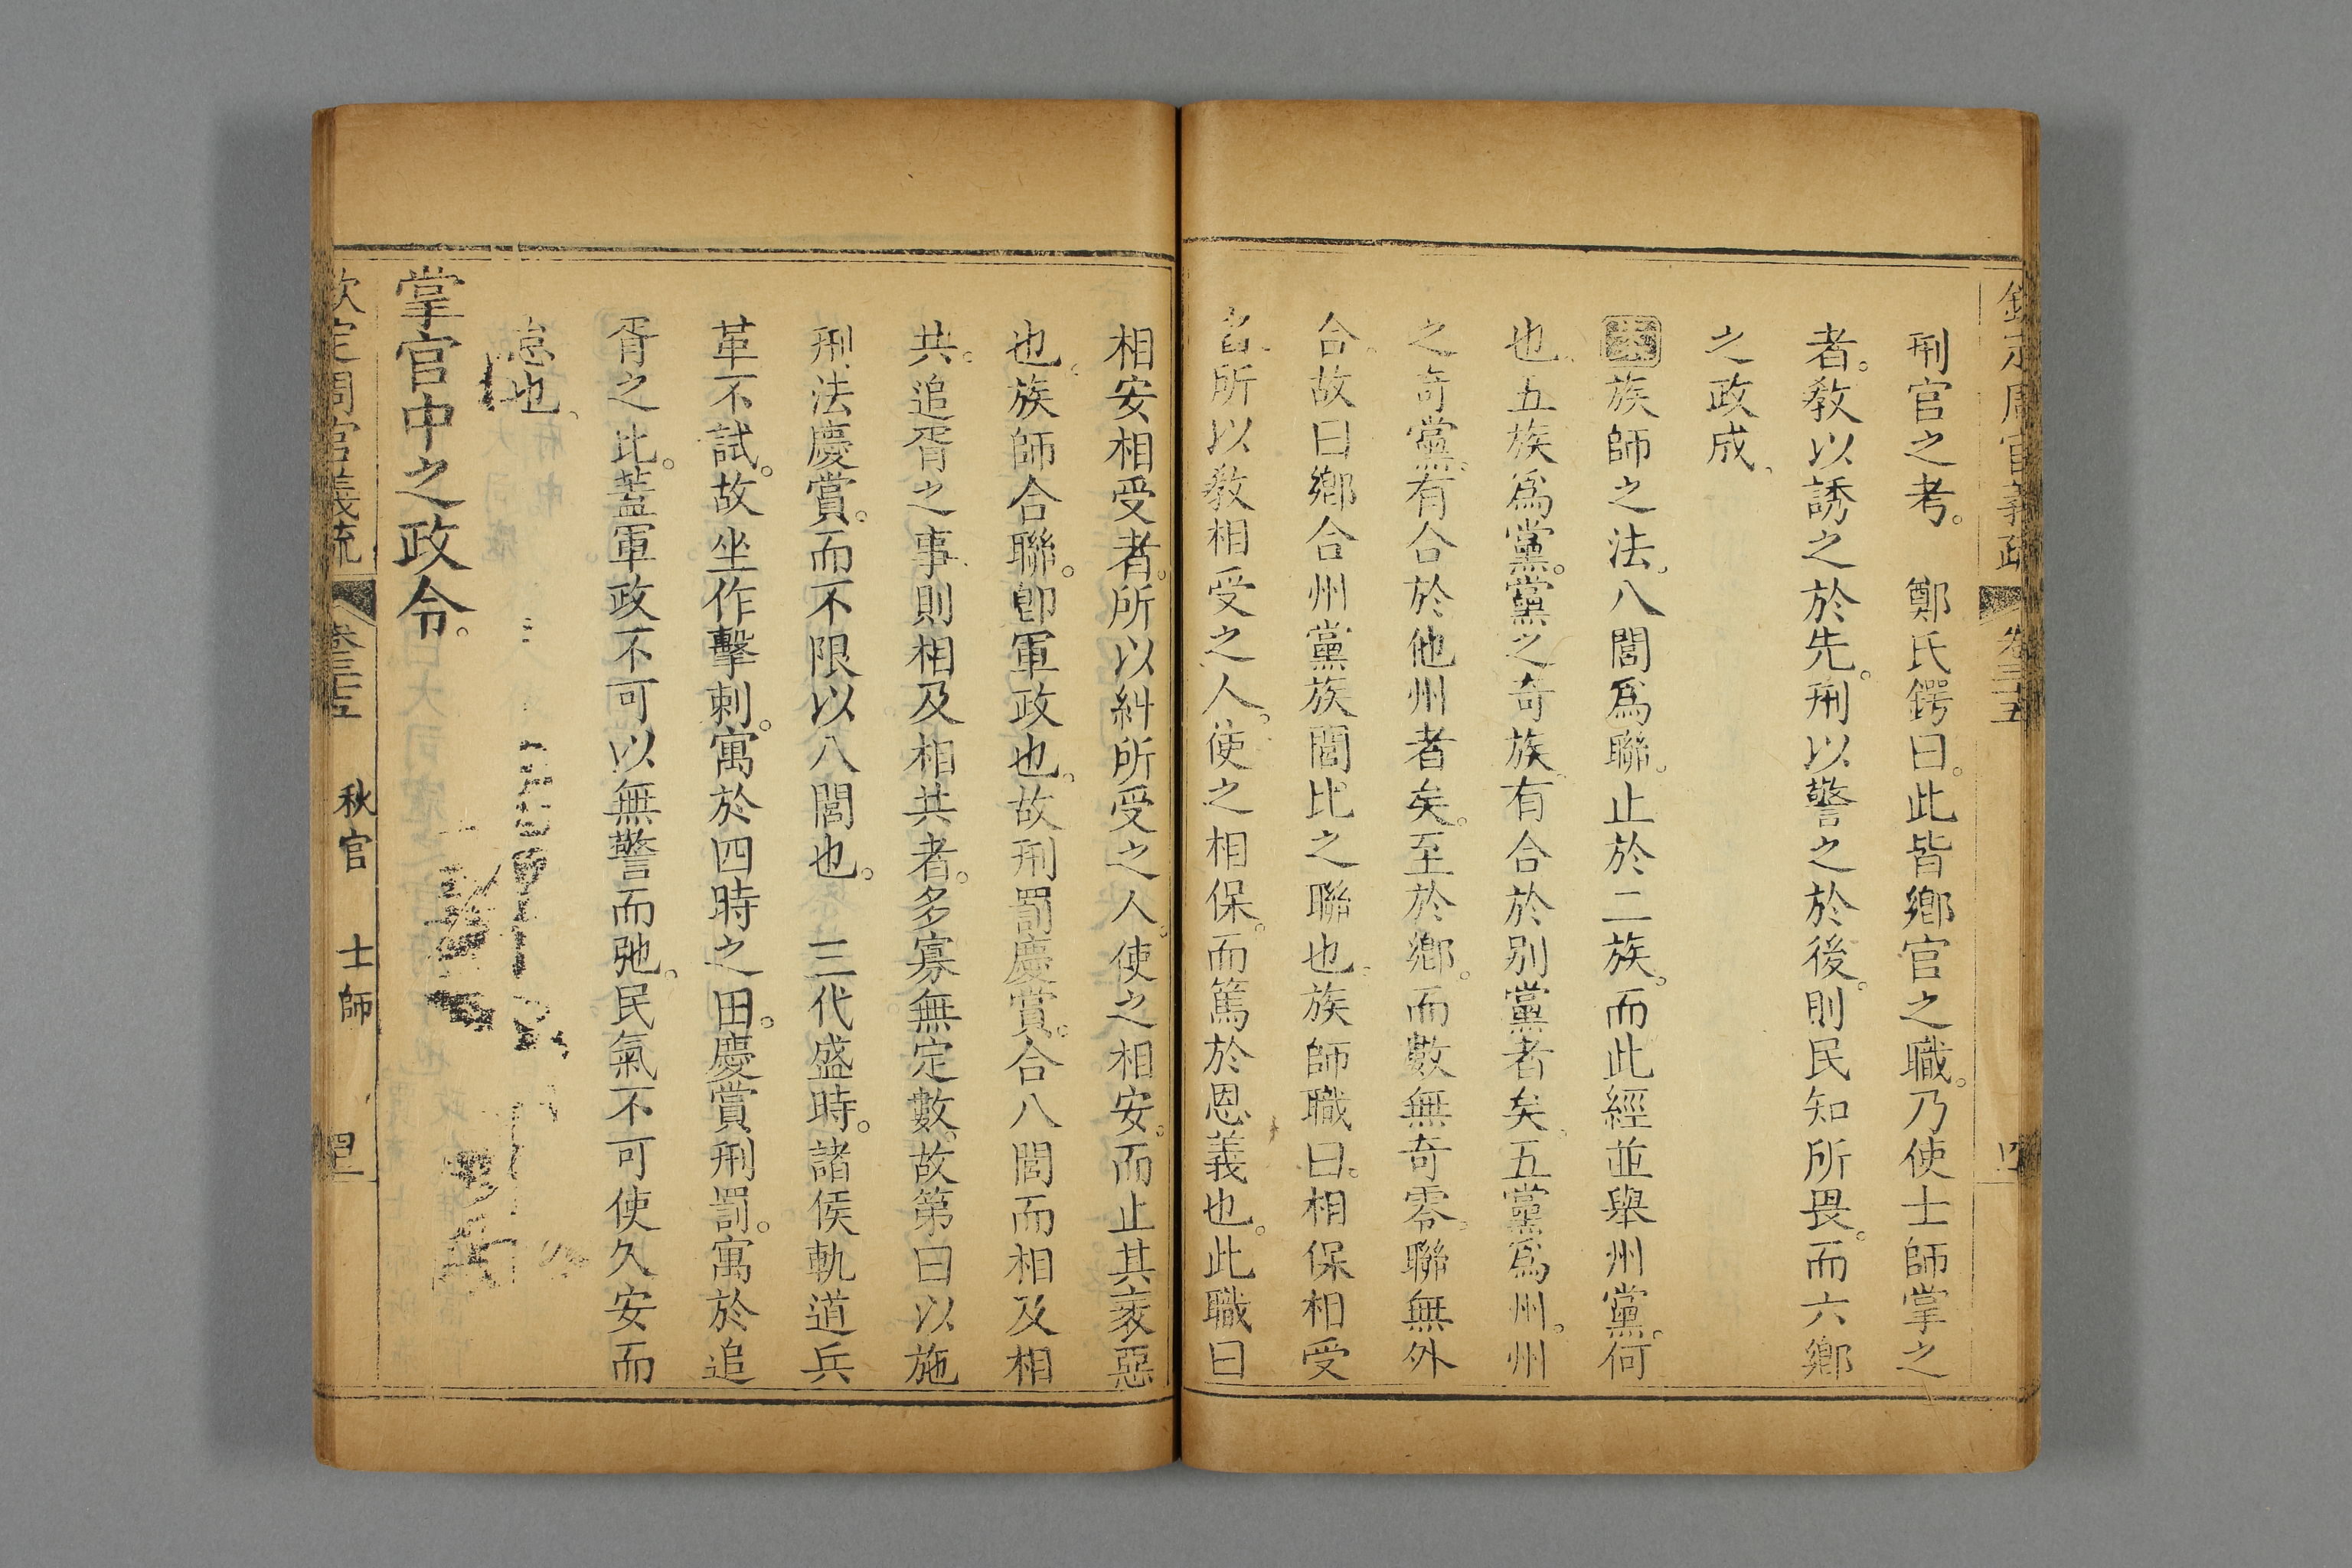 刑官之考。　鄭氏鍔曰。此皆鄉官之職。乃使士師掌之
者。教以誘之於先。刑以警之於後。則民知所畏。而六鄉
之政成、
案族師之法、八閭爲聯。止於二族。而此經並舉州黨。何
也、五族爲黨。黨之奇族、有合於别黨者矣、五黨爲州。州
之奇黨、有合於他州者矣。至於鄉。而數無奇零。聯無外
合。故曰鄉合州黨族閭比之聯也。族師職曰。相保相受
者、所以敎相受之人。使之相保。而篤於恩義也。此職曰
相安相受者。所以糾所受之人。使之相安。而止其衺惡
也。族師合聯。卽軍政也。故刑罰慶賞。合八閭而相及相
共。追胥之事、則相及相共者。多寡無定數。故第曰以施
刑法慶賞。而不限以八閭也。　三代盛時。諸侯軌道兵
革不試。故坐作擊刺。寓於四時之田。慶賞刑罰。寓於追
胥之比。蓋軍政不可以無警而弛。民氣不可使久安而
怠也、
掌官中之政令。
欽定周官義疏　卷三十五　秋官　士師